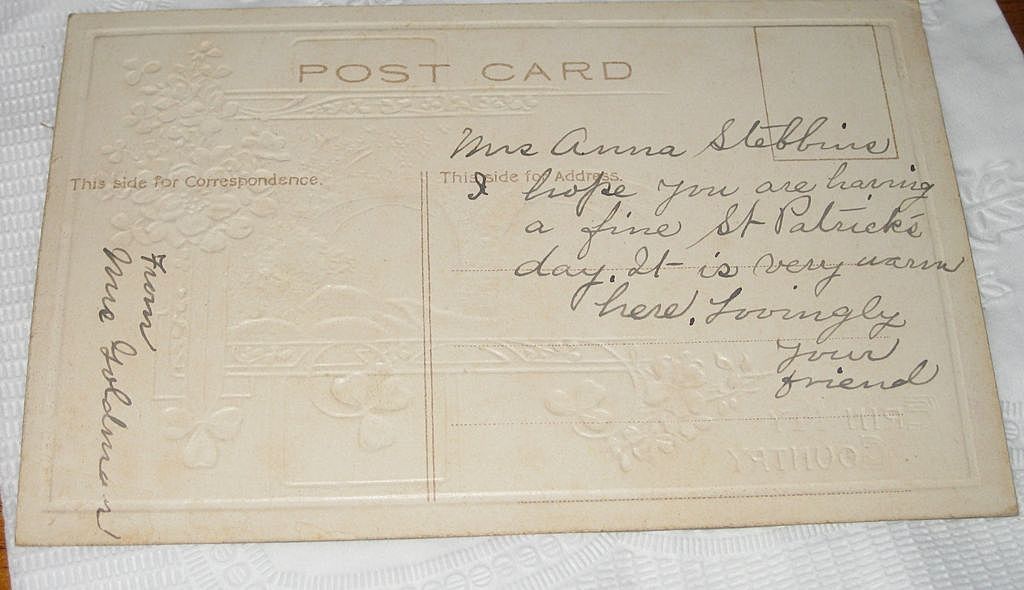 POST CARD
This side for Correspondence.
This side for Address.
Mrs Anna Stebbins
I hope you are having
a fine St Patrick's
day. It is very warm
here. Lovingly
your
friend
From
Mrs Goldman
COUNTRY